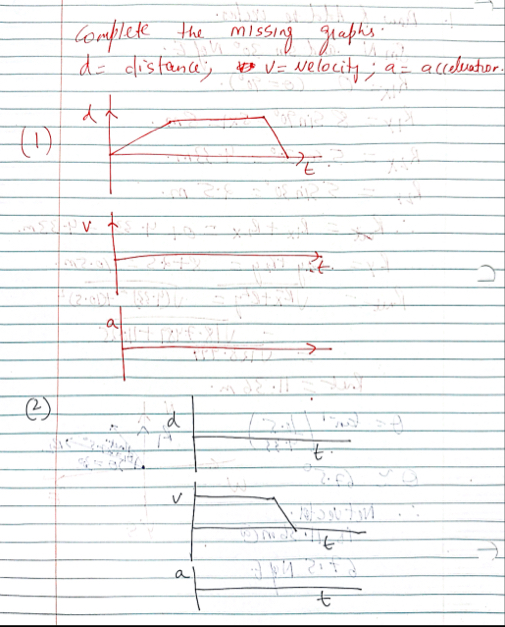 Complete the missing graphs.
d = distance; v = velocity; a = acceleration.
(1)
d
t
v
t
a
(2)
d
t
v
t
a
t